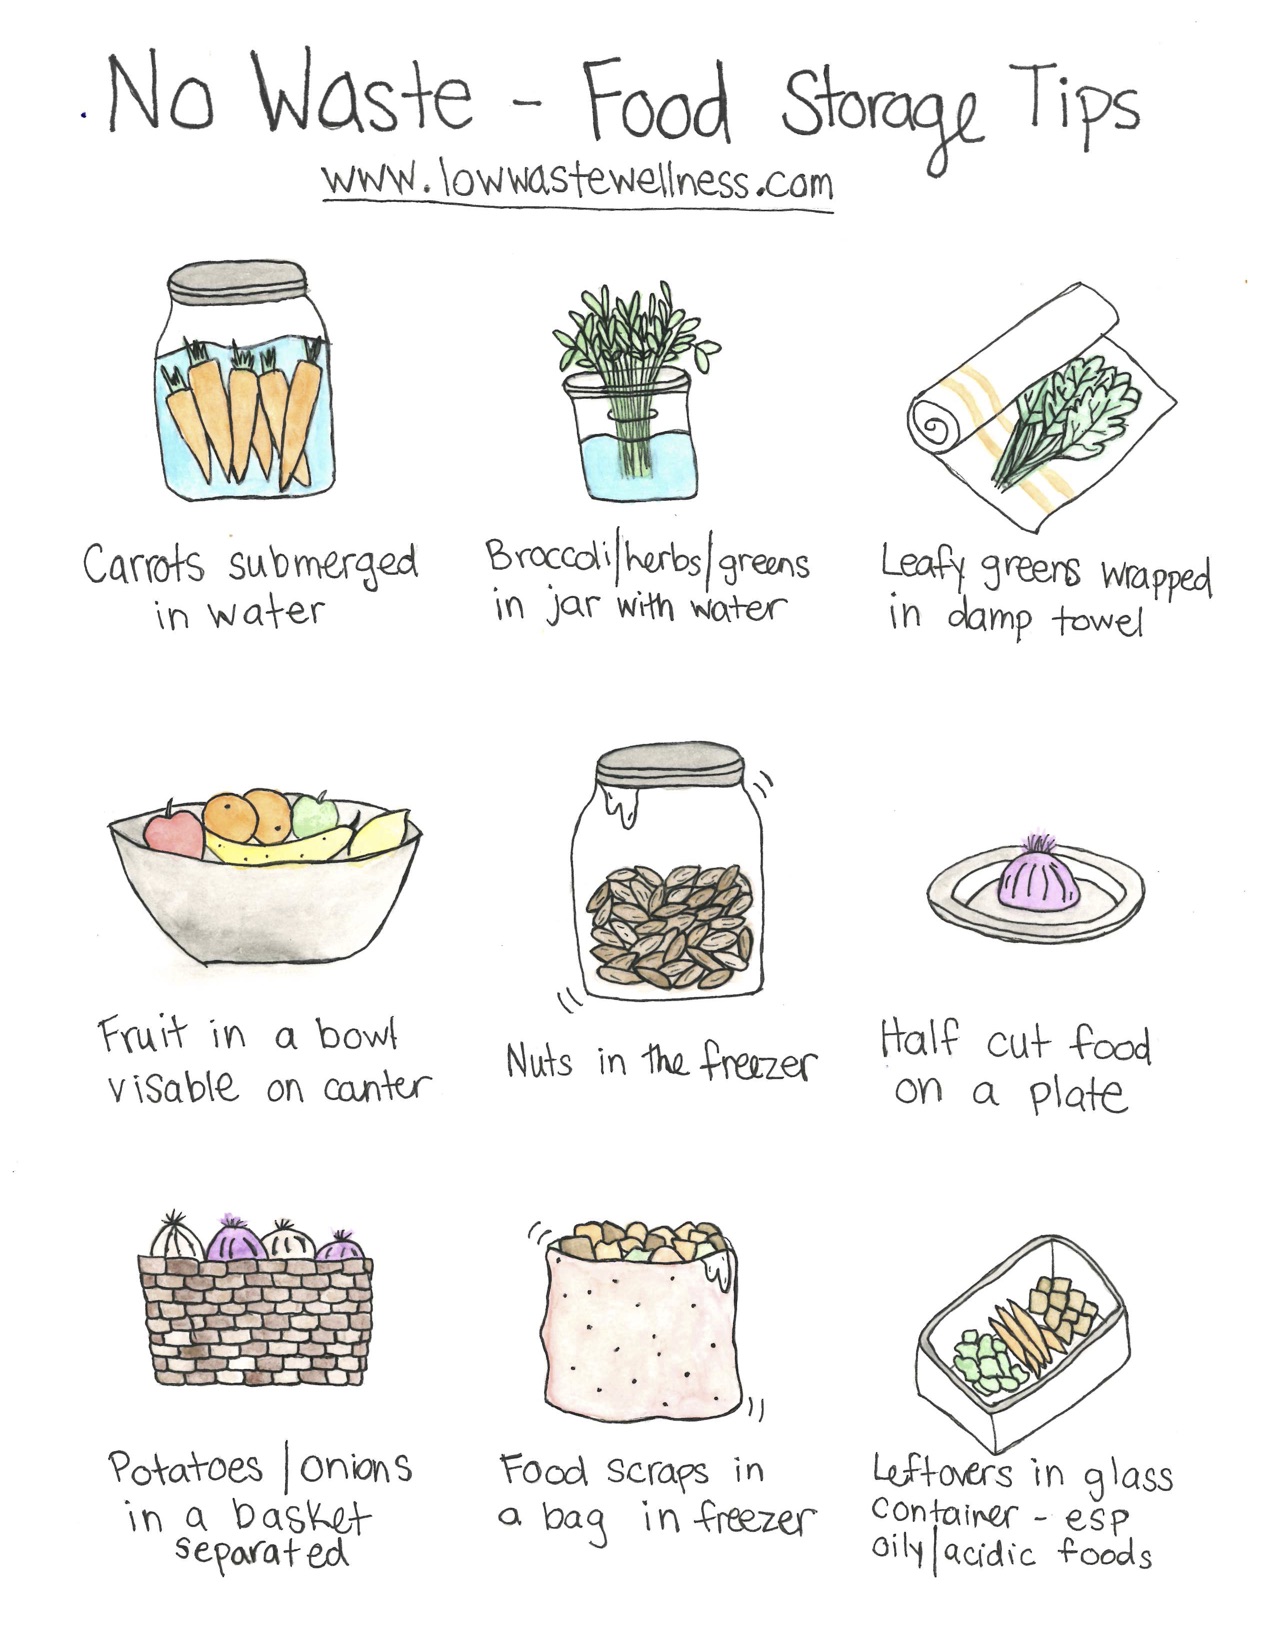 No Waste - Food Storage Tips
www.lowwastewellness.com
Carrots submerged
in water
Broccoli/herbs/greens
in jar with water
Leafy greens wrapped
in damp towel
Fruit in a bowl
visable on canter
Nuts in the freezer
Half cut food
on a plate
Potatoes/onions
in a basket
separated
Food scraps in
a bag in freezer
Leftovers in glass
container - esp
oily/acidic foods